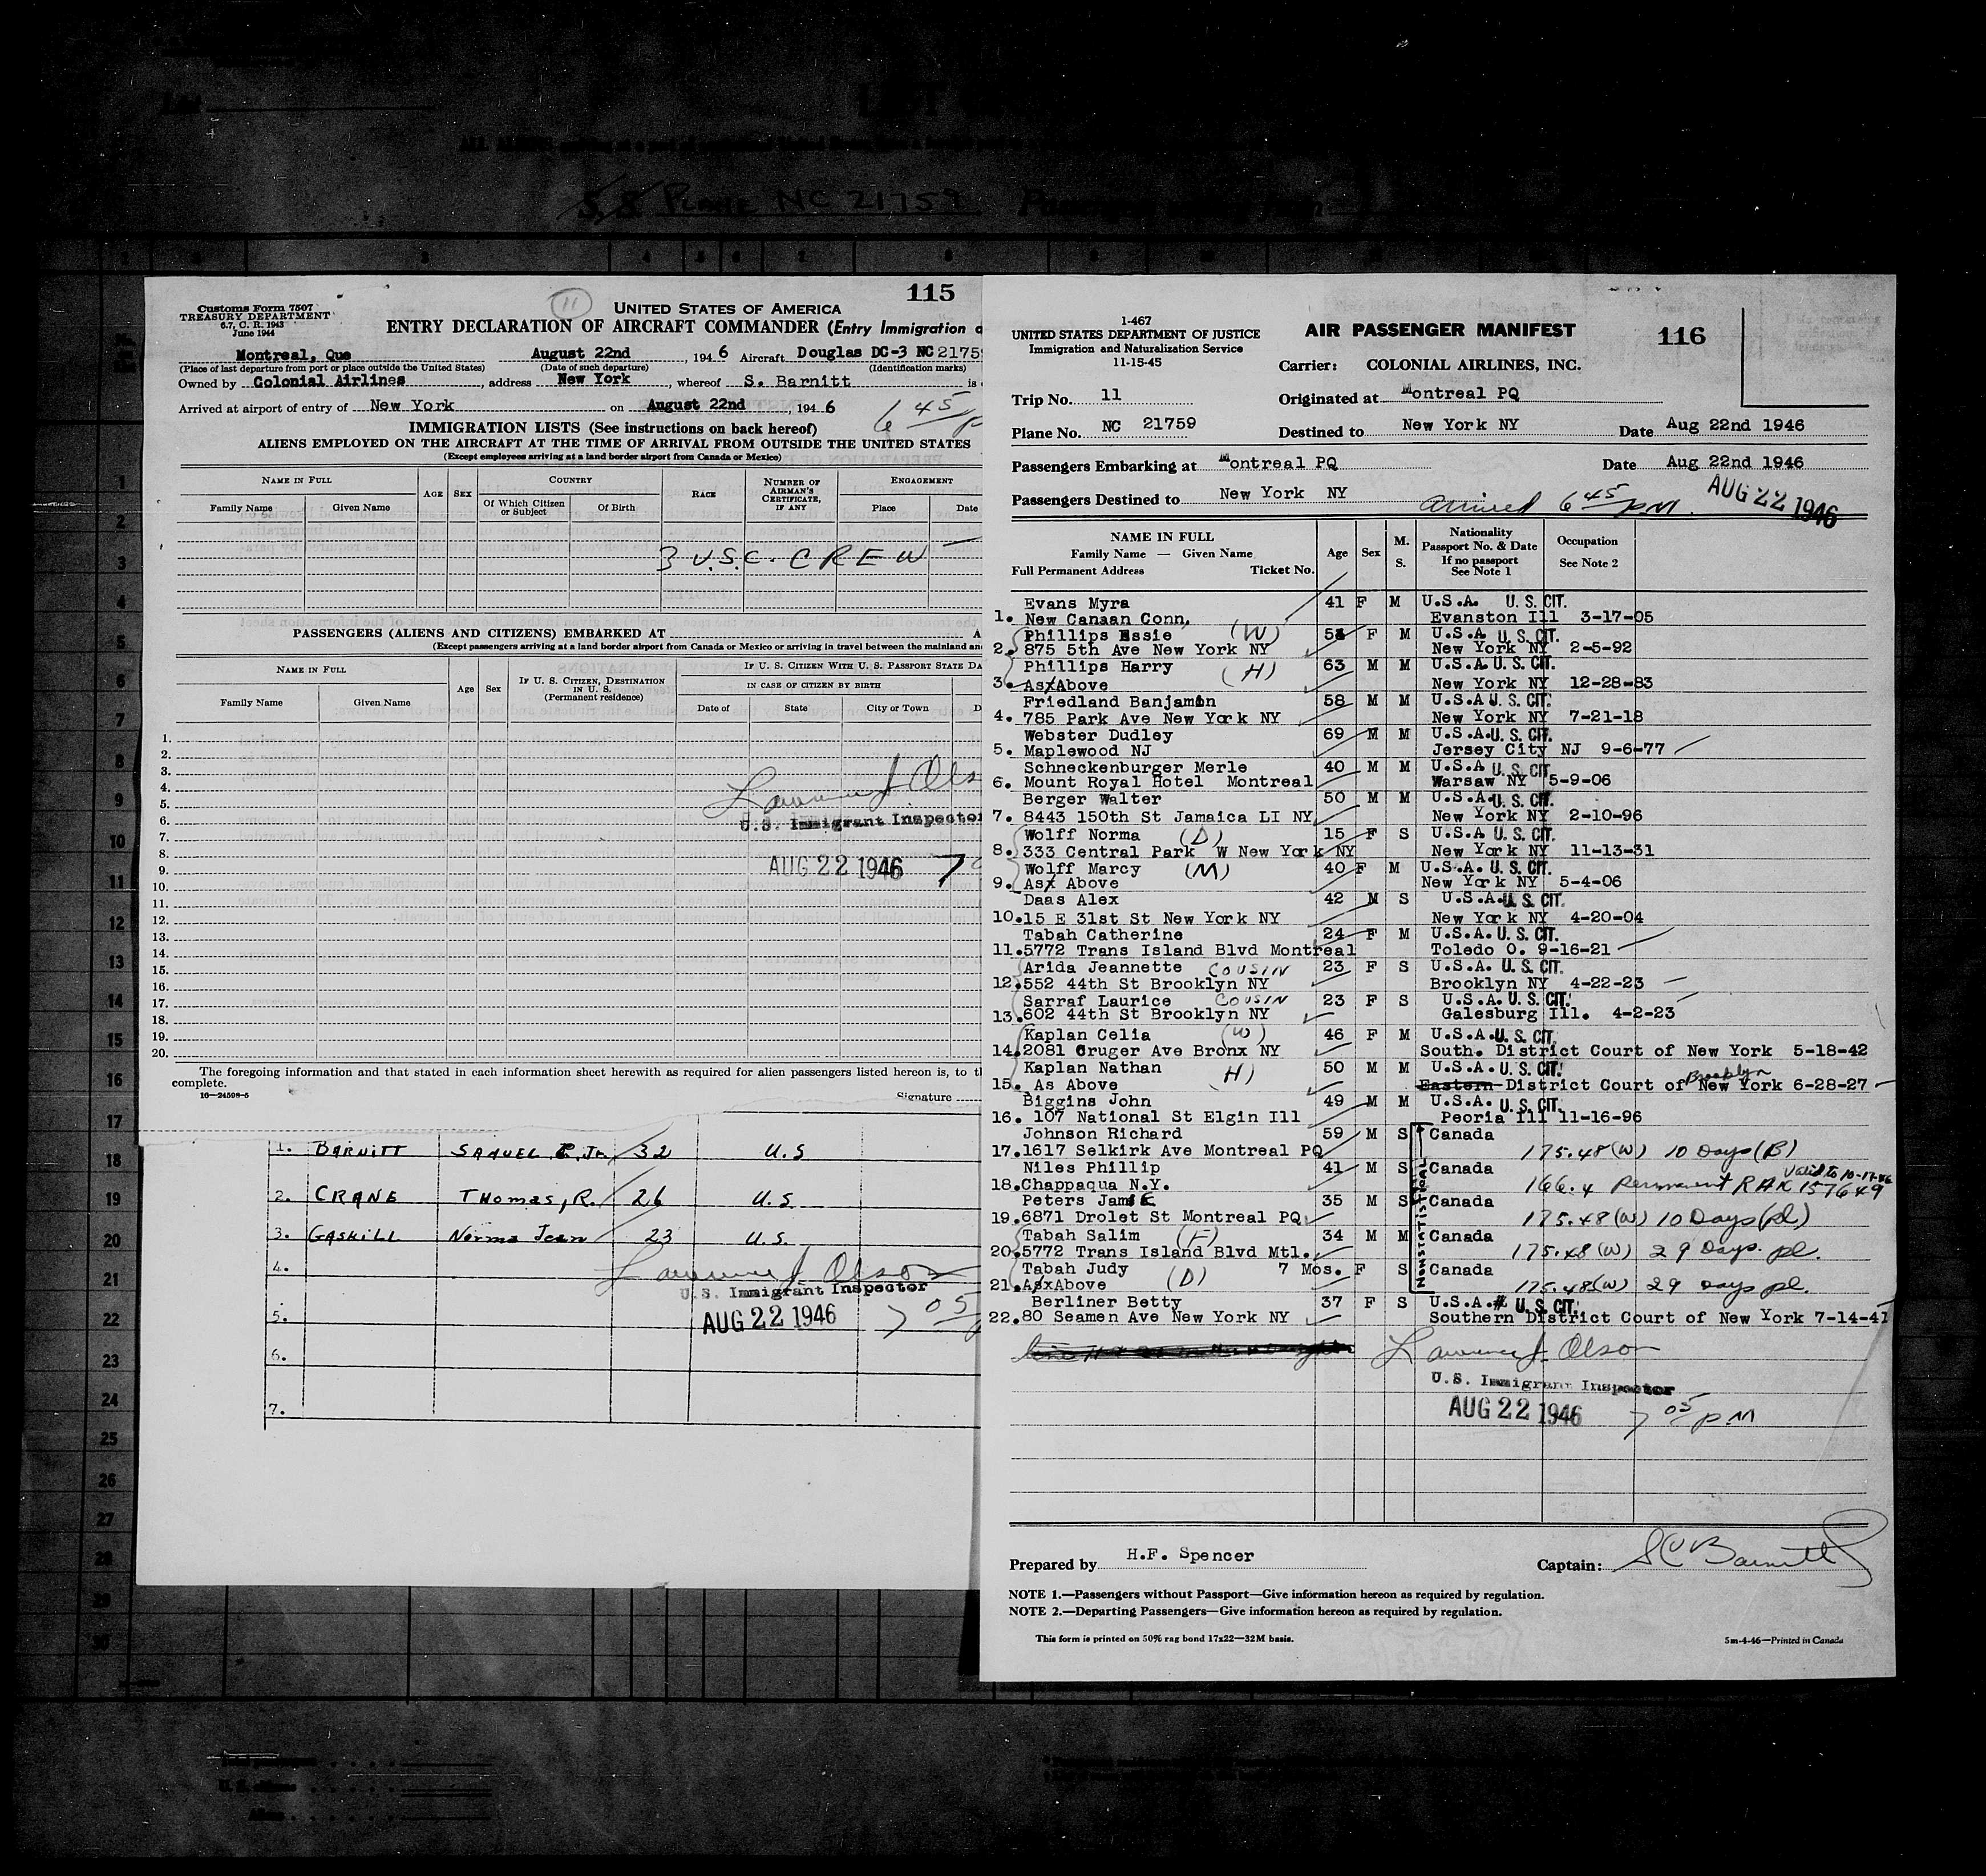 PLANE NC 21759
115
Customs Form 7507
TREASURY DEPARTMENT
6.7, C. R. 1943
June 1944
11
UNITED STATES OF AMERICA
ENTRY DECLARATION OF AIRCRAFT COMMANDER (Entry Immigration
Montreal, Que August 22nd , 194 6 Aircraft Douglas DC-3 NC 2175
(Place of last departure from port or place outside the United States) (Date of such departure) (Identification marks)
Owned by Colonial Airlines , address New York , whereof S. Barnitt is
Arrived at airport of entry of New York on August 22nd , 194 6 6 45
IMMIGRATION LISTS (See instructions on back hereof)
ALIENS EMPLOYED ON THE AIRCRAFT AT THE TIME OF ARRIVAL FROM OUTSIDE THE UNITED STATES
(Except employees arriving at a land border airport from Canada or Mexico)
NAME IN FULL AGE SEX COUNTRY RACE NUMBER OF AIRMAN'S CERTIFICATE, IF ANY ENGAGEMENT
Family Name Given Name Of Which Citizen or Subject Of Birth Place Date
3 U.S.C. CREW
PASSENGERS (ALIENS AND CITIZENS) EMBARKED AT
(Except passengers arriving at a land border airport from Canada or Mexico or arriving in travel between the mainland an
NAME IN FULL Age Sex IF U. S. CITIZEN, DESTINATION IN U. S. (Permanent residence) IF U. S. CITIZEN WITH U. S. PASSPORT STATE DA
IN CASE OF CITIZEN BY BIRTH
Family Name Given Name Date of State City or Town D
1.
2.
3.
4.
5.
6.
7.
8.
9.
10.
11.
12.
13.
14.
15.
16.
17.
18.
19.
20.
Lawrence J. Ols
U.S. Immigrant Inspector
AUG 22 1946 7
The foregoing information and that stated in each information sheet herewith as required for alien passengers listed hereon is, to th
complete.
16—24598-5
Signature
1. BARNITT SAMUEL C. Jr. 32 U.S
2. CRANE THOMAS, R. 26 U.S
3. GASKILL Norma Jean 23 U.S.
4.
Lawrence J. Olson
U.S. Immigrant Inspector
5. AUG 22 1946 7 05
6.
7.
1-467
UNITED STATES DEPARTMENT OF JUSTICE
Immigration and Naturalization Service
11-15-45
AIR PASSENGER MANIFEST
116
Carrier: COLONIAL AIRLINES, INC.
Trip No. 11 Originated at Montreal PQ
Plane No. NC 21759 Destined to New York NY Date Aug 22nd 1946
Passengers Embarking at Montreal PQ Date Aug 22nd 1946
Passengers Destined to New York NY Arrived 6 45 PM. AUG 22 1946
NAME IN FULL
Family Name — Given Name
Full Permanent Address Ticket No.
Age Sex M. S.
Nationality Passport No. & Date If no passport See Note 1
Occupation See Note 2
Evans Myra 41 F M U.S.A. U. S. CIT.
1. New Canaan Conn, Evanston Ill 3-17-05
Phillips Essie (W) 54 F M U.S.A U. S. CIT.
2. 875 5th Ave New York NY New York NY 2-5-92
Phillips Harry (H) 63 M M U.S.A. U. S. CIT.
3. AsxAbove New York NY 12-28-83
Friedland Banjamin 58 M M U.S.A U. S. CIT.
4. 785 Park Ave New York NY New York NY 7-21-18
Webster Dudley 69 M M U.S.A. U. S. CIT.
5. Maplewood NJ Jersey City NJ 9-6-77
Schneckenburger Merle 40 M M U.S.A U. S. CIT.
6. Mount Royal Hotel Montreal Warsaw NY 5-9-06
Berger Walter 50 M M U.S.A. U. S. CIT.
7. 8443 150th St Jamaica LI NY New York NY 2-10-96
Wolff Norma (D) 15 F S U.S.A U. S. CIT.
8. 333 Central Park W New York NY New York NY 11-13-31
Wolff Marcy (M) 40 F M U.S.A. U. S. CIT.
9. Asx Above New York NY 5-4-06
Daas Alex 42 M S U.S.A. U. S. CIT.
10. 15 E 31st St New York NY New York NY 4-20-04
Tabah Catherine 24 F M U.S.A. U. S. CIT.
11. 5772 Trans Island Blvd Montreal Toledo O. 9-16-21
Arida Jeannette COUSIN 23 F S U.S.A. U. S. CIT.
12. 552 44th St Brooklyn NY Brooklyn NY 4-22-23
Sarraf Laurice COUSIN 23 F S U.S.A. U. S. CIT.
13. 602 44th St Brooklyn NY Galesburg Ill. 4-2-23
Kaplan Celia (W) 46 F M U.S.A. U. S. CIT.
14. 2081 Cruger Ave Bronx NY South. District Court of New York 5-18-42
Kaplan Nathan (H) 50 M M U.S.A. U. S. CIT.
Brooklyn
15. As Above Eastern District Court of New York 6-28-27
Biggins John 49 M M U.S.A. U. S. CIT.
16. 107 National St Elgin Ill Peoria Ill 11-16-96
NONSTATISTICAL
Johnson Richard 59 M S Canada
17. 1617 Selkirk Ave Montreal PQ 175.48 (W) 10 Days (B)
Niles Phillip 41 M S Canada Valid to 10-17-46
18. Chappaqua N.Y. 166.4 Permanent RAK 157649
Peters James 35 M S Canada
19. 6871 Drolet St Montreal PQ 175.48 (W) 10 Days (pl)
Tabah Salim (F) 34 M M Canada
20. 5772 Trans Island Blvd Mtl. 175.48 (W) 29 Days. pl.
Tabah Judy (D) 7 Mos. F S Canada
21. AsxAbove 175.48(W) 29 days pl.
Berliner Betty 37 F S U.S.A. U. S. CIT.
22. 80 Seamen Ave New York NY Southern District Court of New York 7-14-41
Lawrence J. Olson
U.S. Immigrant Inspector
AUG 22 1946 7 05 PM
Prepared by H.F. Spencer Captain: S C Barnitt Jr
NOTE 1.—Passengers without Passport—Give information hereon as required by regulation.
NOTE 2.—Departing Passengers—Give information hereon as required by regulation.
This form is printed on 50% rag bond 17x22—32M basis. 5m-4-46—Printed in Canada